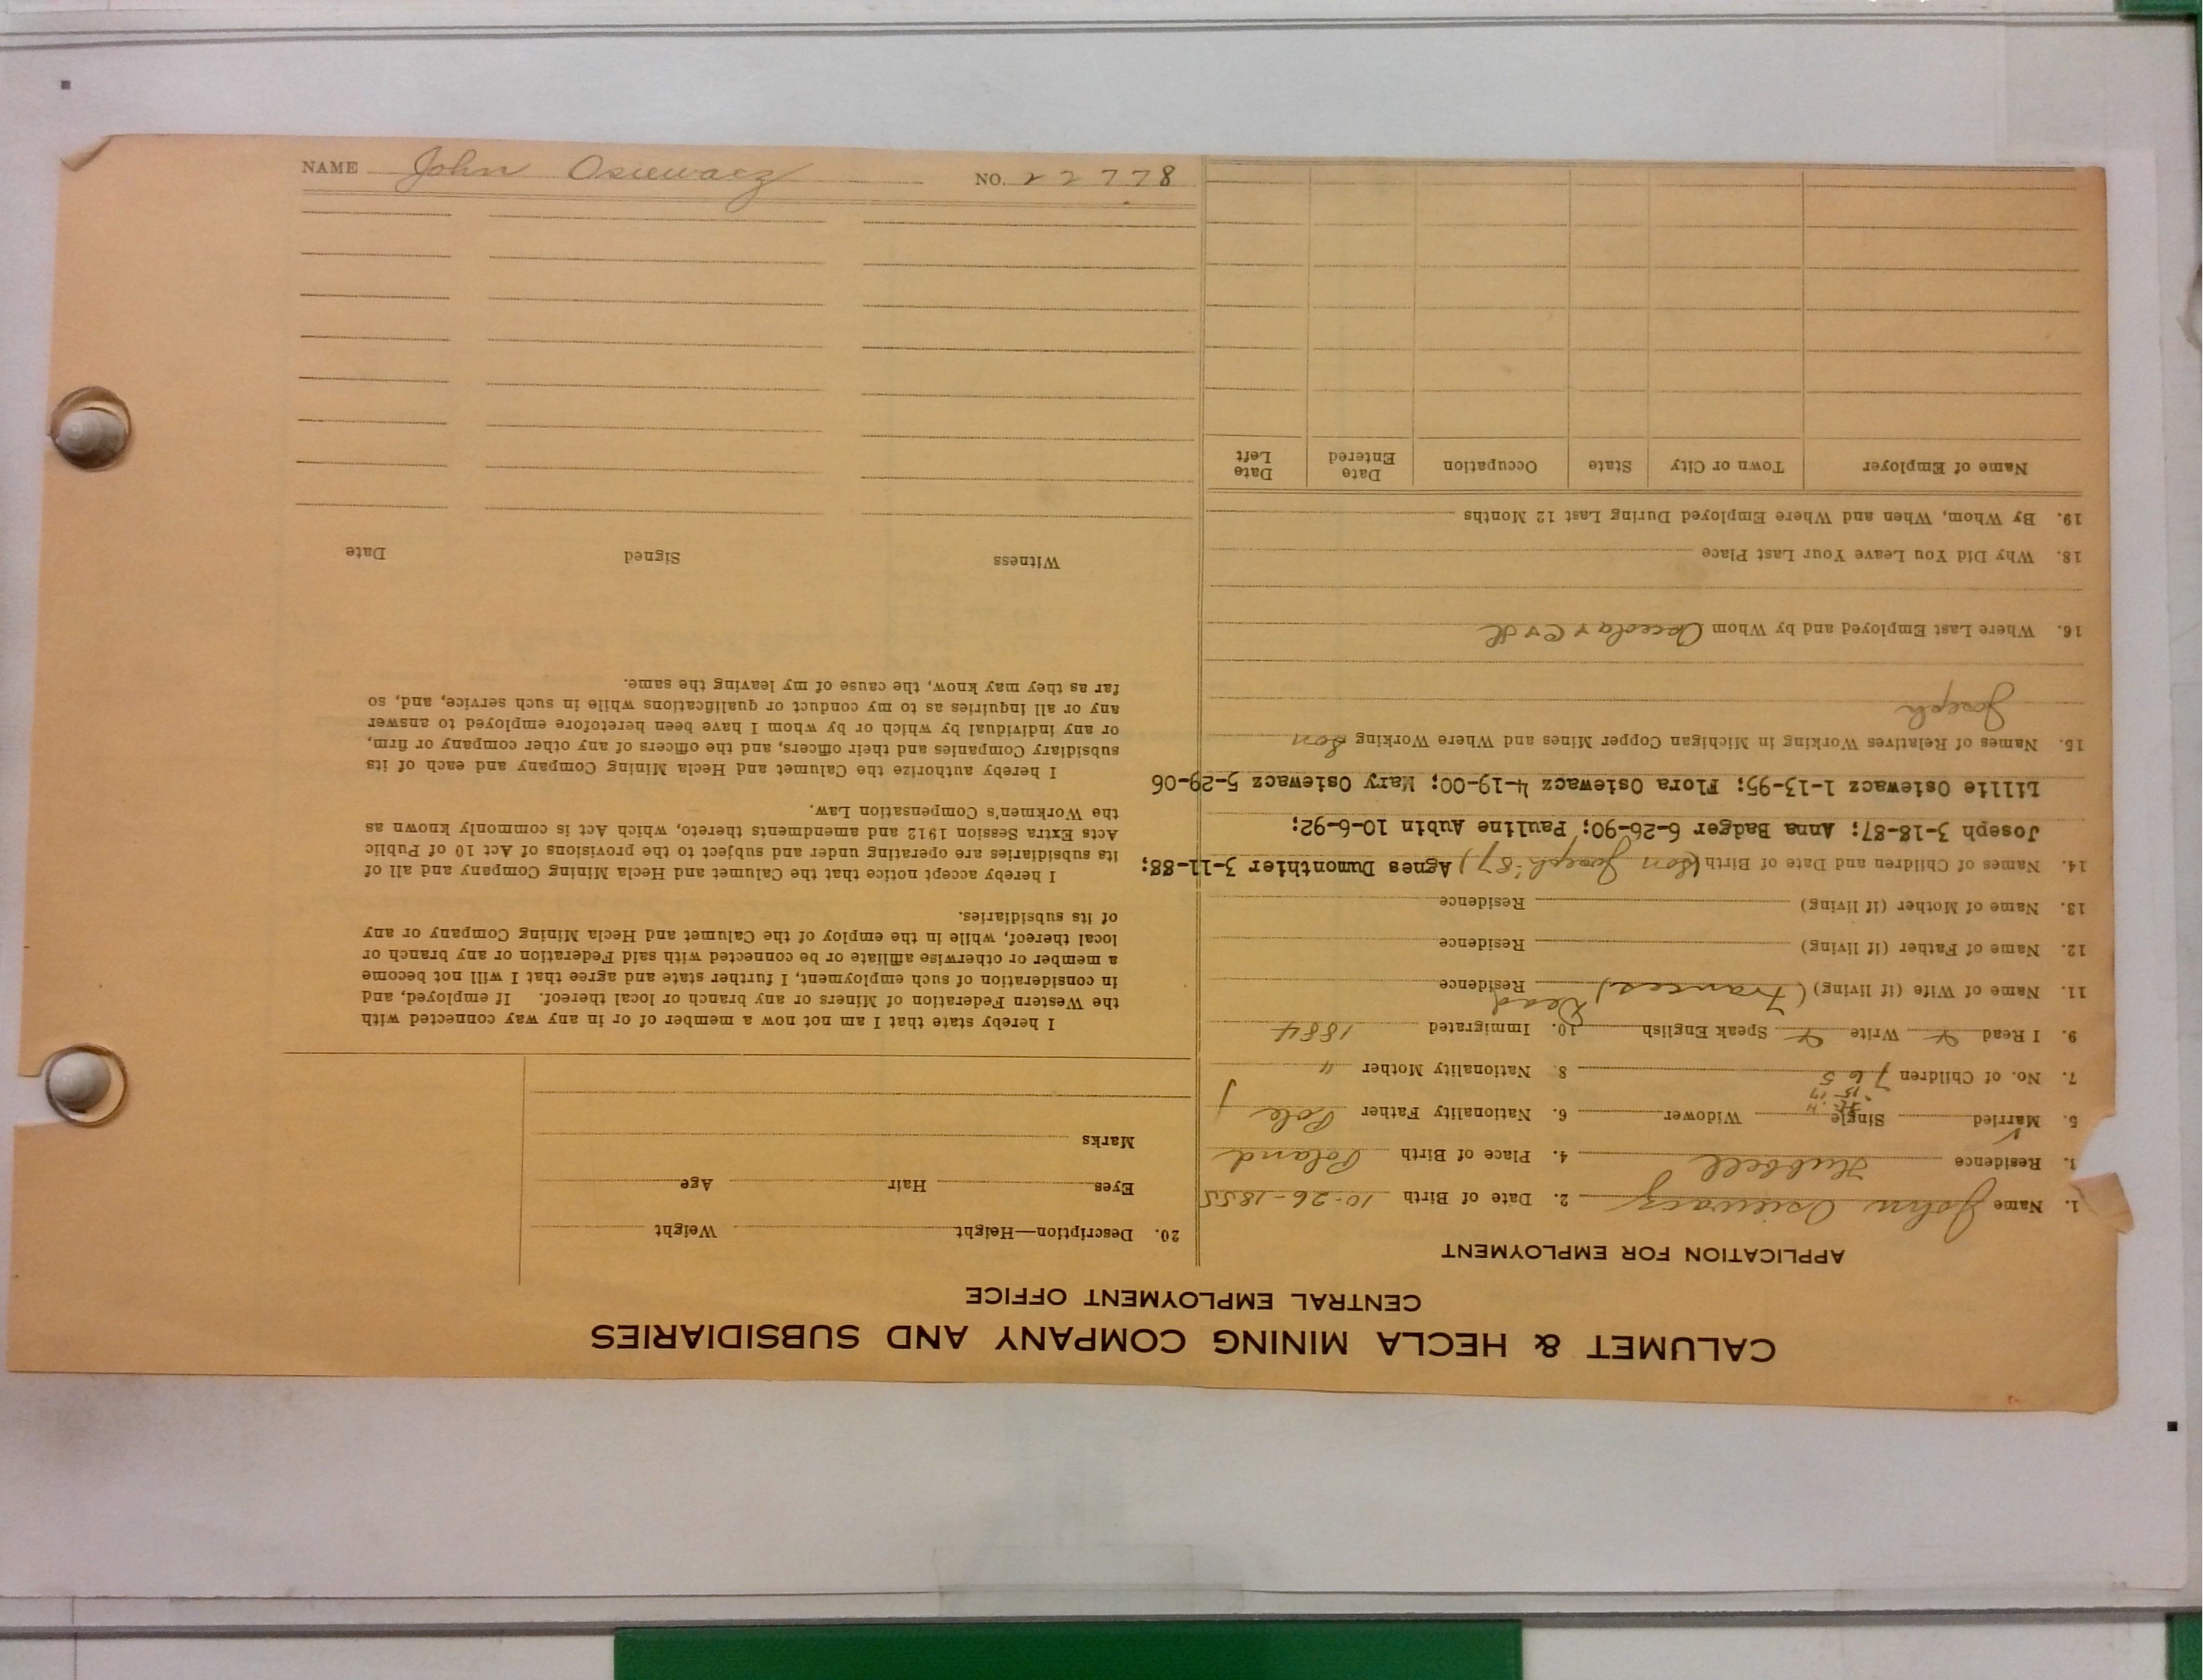 NAME John Osiewacz NO. 22778
CALUMET & HECLA MINING COMPANY AND SUBSIDIARIES
CENTRAL EMPLOYMENT OFFICE
APPLICATION FOR EMPLOYMENT
1. Name John Osiewacz 2. Date of Birth 10-26-1855
3. Residence Hubbell 4. Place of Birth Poland
5. Married Single Widower 6. Nationality Father Pole
7. No. of Children 7 6 5 8. Nationality Mother "
9. I Read Write Speak English 10. Immigrated 1884
11. Name of Wife (if living) (Frances) Dead Residence
12. Name of Father (if living) Residence
13. Name of Mother (if living) Residence
14. Names of Children and Date of Birth (son Joseph '87) Agnes Dumonthier 3-11-88;
Joseph 3-18-87; Anna Badger 6-26-90; Pauline Aubin 10-6-92;
Lillie Osiewacz 1-13-95; Flora Osiewacz 4-19-00; Mary Osiewacz 5-29-06
15. Names of Relatives Working in Michigan Copper Mines and Where Working Son
Joseph
16. Where Last Employed and by Whom Osceola & C & H
18. Why Did You Leave Your Last Place
19. By Whom, When and Where Employed During Last 12 Months
Name of Employer Town or City State Occupation Date Entered Date Left
20. Description—Height Weight
Eyes Hair Age
Marks
I hereby state that I am not now a member of or in any way connected with
the Western Federation of Miners or any branch or local thereof. If employed, and
in consideration of such employment, I further state and agree that I will not become
a member or otherwise affiliate or be connected with said Federation or any branch or
local thereof, while in the employ of the Calumet and Hecla Mining Company or any
of its subsidiaries.
I hereby accept notice that the Calumet and Hecla Mining Company and all of
its subsidiaries are operating under and subject to the provisions of Act 10 of Public
Acts Extra Session 1912 and amendments thereto, which Act is commonly known as
the Workmen's Compensation Law.
I hereby authorize the Calumet and Hecla Mining Company and each of its
subsidiary Companies and their officers, and the officers of any other company or firm,
or any individual by which or by whom I have been heretofore employed to answer
any or all inquiries as to my conduct or qualifications while in such service, and, so
far as they may know, the cause of my leaving the same.
Witness Signed Date